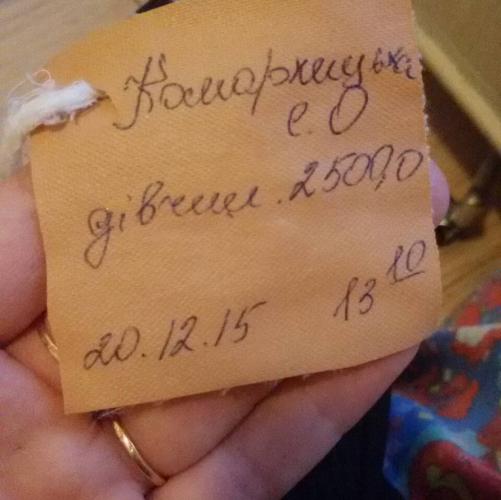 Комарницька
Є. О
дівчин. 2500,0
20.12.15 13 10